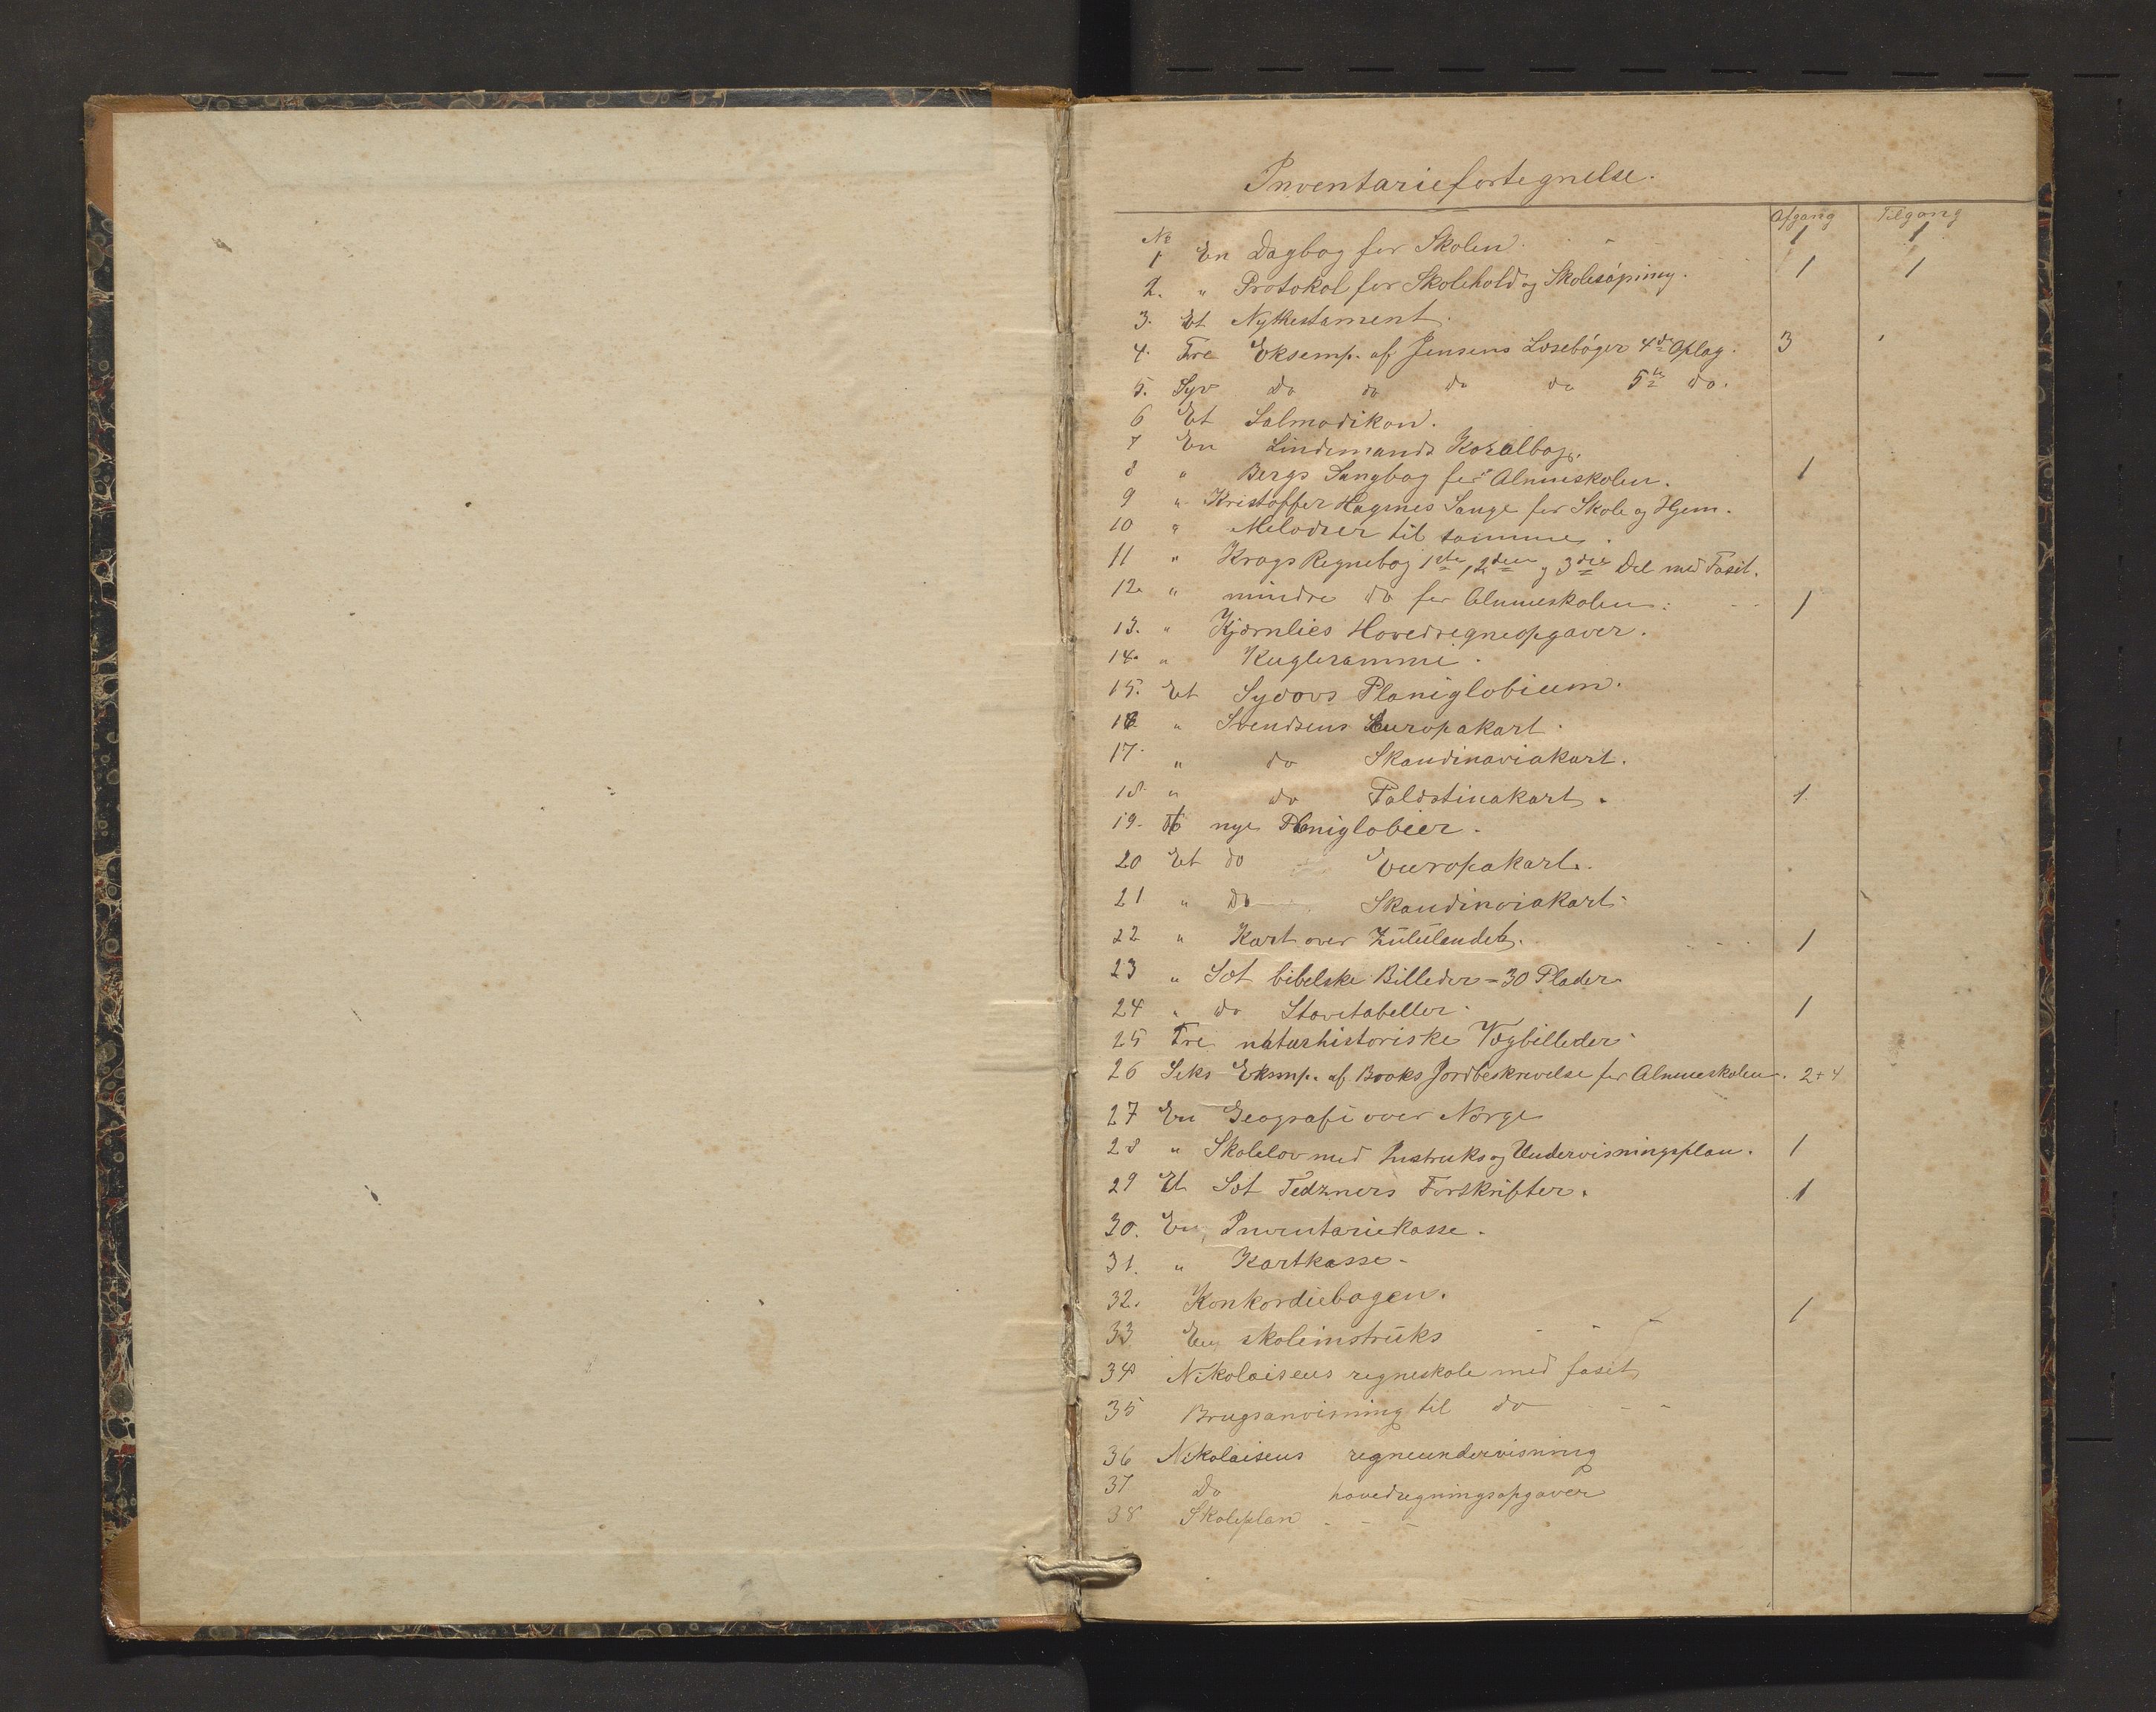 Inventariefortegnelse.
Afgang Tilgang
No
1 En Dagbog for Skolen. - - 1 1
2. " Protokol for Skolehold og Skolesøgning. 1 1
3. Et Nytestament.
4. Tre Eksemp. af Jensens Læsebøger 4de Oplag. 3
5. Syv do do do do 5te do.
6 Et Salmodikon.
7 En Lindemands Koralbog.
8 " Bergs Sangbog for Almueskolen. 1
9 " Kristoffer Hagenes Sange for Skole og Hjem.
10 " Melodier til samme.
11 " Krogs Regnebog 1ste, 2den og 3die Del med Fasit.
12. " mindre do for Almueskolen: - - 1
13. " Kjærnlies Hovedregneopgaver.
14. " Kugleramme.
15. Et Sydovs Planiglobium.
16. " Svendsens Europakart.
17. " do Skandinaviakart.
18. " do Palæstinakart. 1
19. To nye Planiglobier.
20 Et do Europakart.
21 " do Skandinviakart.
22 " Kart over Zululandet. - - - 1
23 " Sæt bibelske Billeder = 30 Plader
24 " do Stavetabeller. 1
25 Tre naturhistoriske Vægbilleder
26 Seks Eksmp. af Books Jordbeskrivelse for Almueskolen. 2+4
27 En Geografi over Norge
28 " Skolelov med Instruks og Undervisningsplan. 1
29 Et Sæt Tedzners Forskrifter. 1
30. En Inventariekasse.
31. " Kartkasse.
32. Konkordiebogen.
33 En skoleinstruks - - - 1
34 Nikolaisens regneskole med fasit
35 Brugsanvisning til do - -
36 Nikolaisens regneundervisning
37 Do hovedregningsopgaver
38 Skoleplan - - -